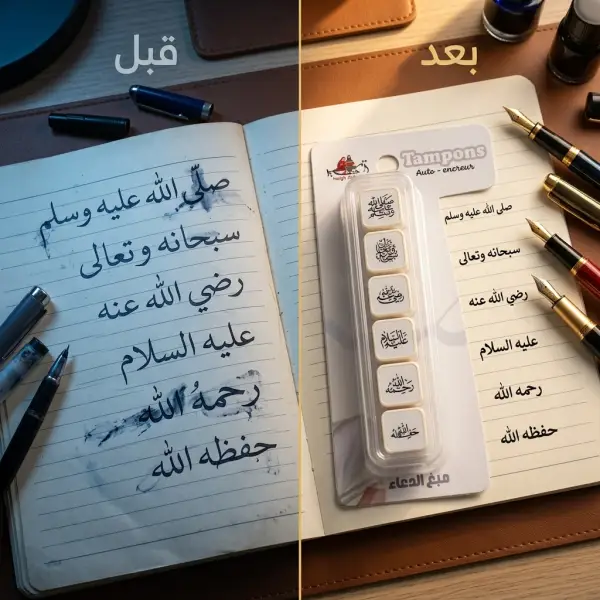 قبل
صلّى الله عليه وسلم
سبحانه وتعالى
رضي الله عنه
عليه السلام
رحمهُ الله
حفظه الله
بعد
Tampons
Auto - encreur
صلى الله عليه وسلم
سبحانه وتعالى
رضي الله عنه
عليه السلام
رحمه الله
حفظه الله
صيغ الدعاء